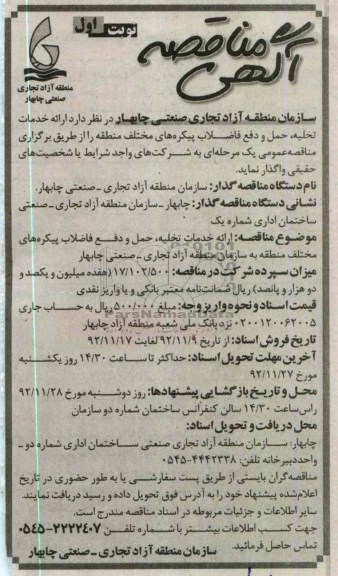 آگهی مناقصه
نوبت اول
منطقه آزاد تجاری
صنعتی چابهار
سازمان منطقه آزاد تجاری صنعتی چابهار در نظر دارد ارائه خدمات
تخلیه، حمل و دفع فاضلاب پیکره‌های مختلف منطقه را از طریق برگزاری
مناقصه عمومی یک مرحله‌ای به شرکت‌های واجد شرایط یا شخصیت‌های
حقیقی واگذار نماید.
نام دستگاه مناقصه گذار: سازمان منطقه آزاد تجاری ـ صنعتی چابهار.
نشانی دستگاه مناقصه گذار: چابهار ـ سازمان منطقه آزاد تجاری ـ صنعتی
ساختمان اداری شماره یک
موضوع مناقصه: ارائه خدمات تخلیه، حمل و دفع فاضلاب پیکره‌های
مختلف منطقه به سازمان منطقه آزاد تجاری ـ صنعتی چابهار
میزان سپرده شرکت در مناقصه: ۱۷/۱۰۲/۵۰۰ (هفده میلیون و یکصد و
دو هزار و پانصد) ریال ضمانت‌نامه معتبر بانکی و یا واریز نقدی
قیمت اسناد و نحوه واریز وجه: مبلغ ۵۰۰/۰۰۰ ریال به حساب جاری
۰۲۰۰۱۲۰۰۶۲۰۰۵ نزد بانک ملی شعبه منطقه آزاد چابهار
تاریخ فروش اسناد: از تاریخ ۹۲/۱۱/۹ لغایت ۹۲/۱۱/۱۷
آخرین مهلت تحویل اسناد: حداکثر تا ساعت ۱۴/۳۰ روز یکشنبه
مورخ ۹۲/۱۱/۲۷
محل و تاریخ بازگشایی پیشنهادها: روز دوشنبه مورخ ۹۲/۱۱/۲۸
راس ساعت ۱۴/۳۰ سالن کنفرانس ساختمان شماره دو سازمان
محل دریافت و تحویل اسناد:
چابهار: سازمان منطقه آزاد تجاری صنعتی ساختمان اداری شماره دو ـ
واحد دبیرخانه تلفن: ۴۴۴۲۳۳۸-۰۵۴۵
مناقصه‌گران بایستی از طریق پست سفارشی یا به طور حضوری در تاریخ
اعلام‌شده پیشنهاد خود را به آدرس فوق تحویل داده و رسید دریافت نمایند.
سایر اطلاعات و جزئیات مربوطه در اسناد مناقصه مندرج است.
جهت کسب اطلاعات بیشتر با شماره تلفن ۲۲۲۲۴۰۷-۰۵۴۵
تماس حاصل فرمائید.
سازمان منطقه آزاد تجاری ـ صنعتی چابهار